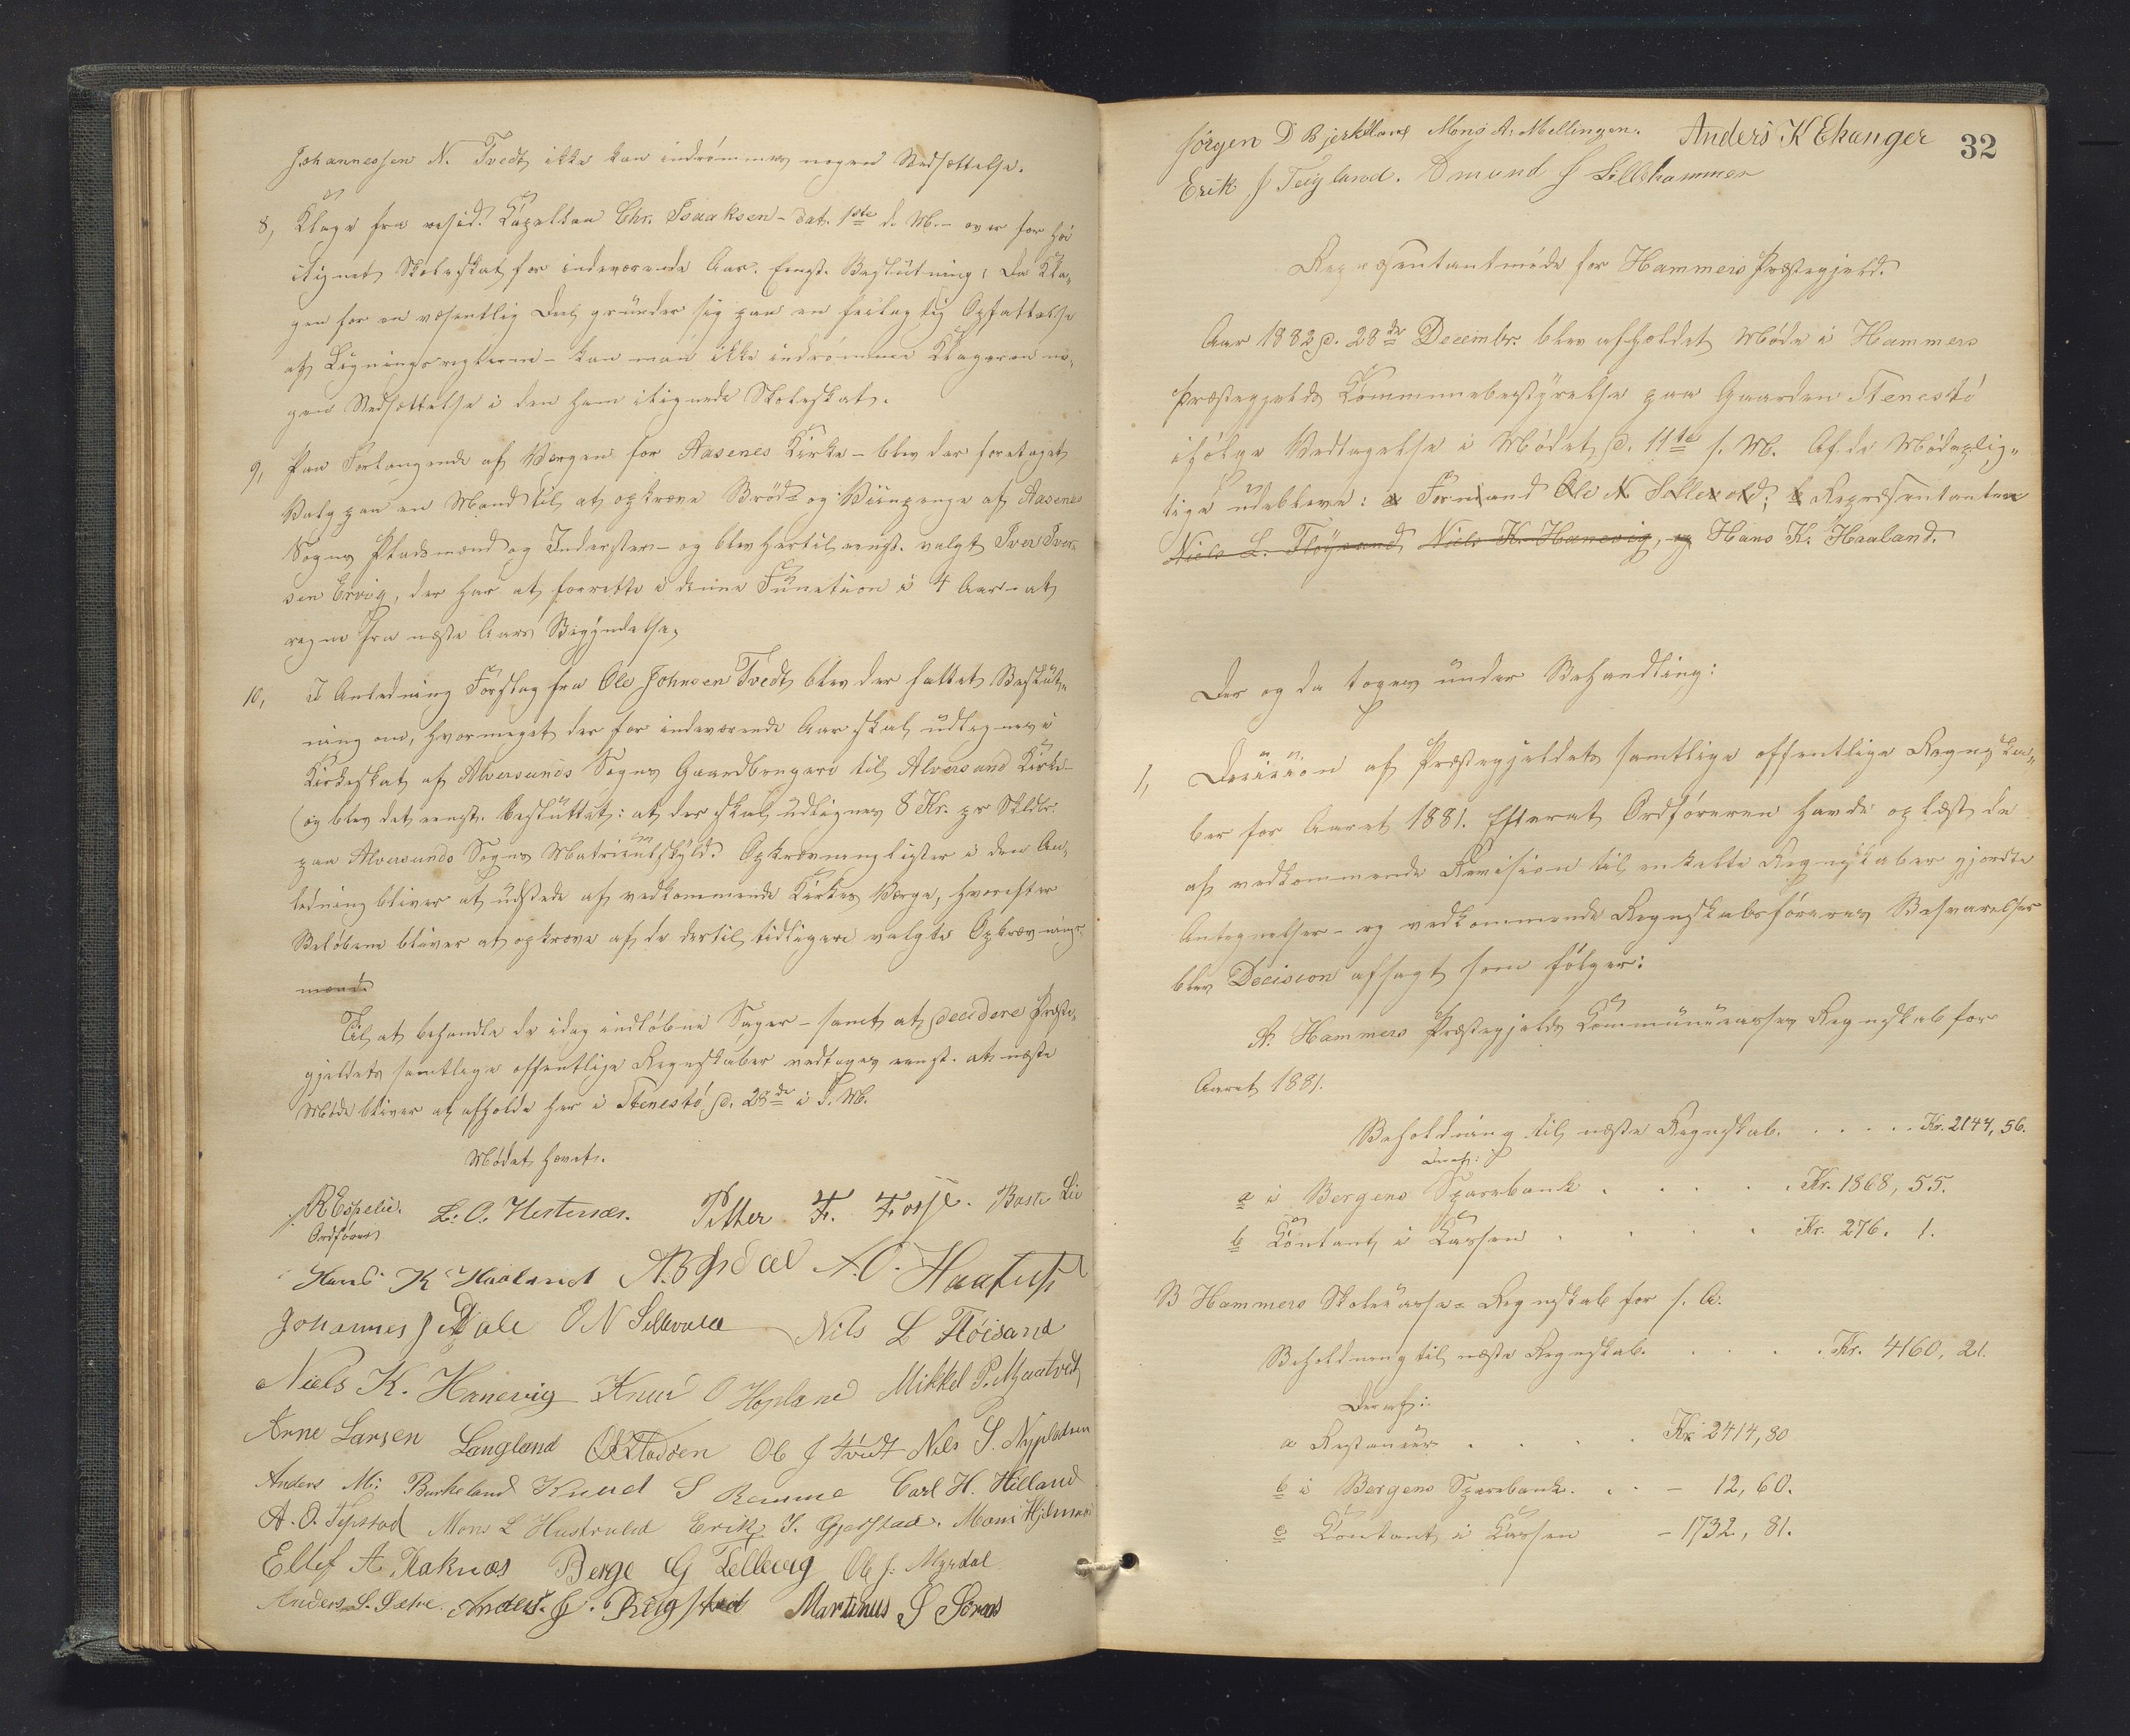 Johannessen N. Tvedt ikke kan indrømmes nogen Nedsættelse.
8, Klage fra resid. Kapellan Chr. Isaaksen - dat. 1ste d. M. - over for høi
ilignet Skoleskat for indeværende Aar. Eenst. Beslutning: Da Kla-
gen for en væsentlig Deel grunder sig paa en feilagtig Opfattelse
af Ligningsreglerne - kan man ikke indrømme Klageren no-
gen Nedsættelse i den ham ilignede Skoleskat.
9, Paa Forlangende af Værgen for Aasenes Kirke - blev der foretaget
Valg paa en Mand til at opkræve Brød- og Viinpenge af Aasene
Sogns Pladsmænd og Inderster - og blev hertil eenst. valgt Iver Iver-
sen Ervig, der har at forrette i denne Function i 4 Aar - at
regne fra næste Aars Begyndelse.
10, I Anledning Forslag fra Ole Johnsen Tvedt blev der fattet Beslut-
ning om, hvormeget der for indeværende Aar skal udlignes i
Kirkeskat af Alversunds Sogns Gaardbrugere til Alversund Kirke -
og blev det eenst. besluttet: at der skal udlignes 8 Kr. pr Skldr.
paa Alversunds Sogns Matriculskyld. Opkrævningslister i den An-
ledning bliver at udstede af vedkommende Kirkes Værge, hvorefter
Beløbene bliver at opkræve af de dertil tidligere valgte Opkrævnings-
mænd.
Til at behandle de idag indløbne Sager - samt at decidere Præste-
gjeldets samtlige offentlige Regnskaber vedtages eenst. at næste
Møde bliver at afholde her i Stenestø d. 28de i d. M.
Mødet hævet.
R Espelid. L. O. Herternæs. Petter F. Fosse. Baste Lie
Ordfører
Hans K Haaland A. B Isdal A. O. Haatuft
Johannes J Dale O N Sellevold Nils L Fløisand
Niels K. Hanevig Knud O Hopland Mikkel P. Mjaatvedt
Arne Larsen Langland Ole J Tvedt Nils S.
Anders M: Burkeland Knud S Ramme Carl H. Hilland
A. O. Mons L Erik J. Gjerstad. Mons
Ellef A Berge G Tellevig Ole J. Myrdal
Anders S. Sætre. Anders J. Rigstad Martinus S
Jørgen D Bjerkeland Mons A. Mellingen. Anders K Ekanger 32
Erik J Teigland. Amund J Lillehammer
Repræsentantmøde for Hammers Præstegjeld.
Aar 1882 d. 28de Decembr. blev afholdet Møde i Hammers
Præstegjelds Kommunebestyrelse paa Gaarden Stenestø
ifølge Vedtagelse i Mødet d. 11te s. M. Af de Mødeplig-
tige udebleve: a Formand Ole N Sellevold; b Repræsentanten
Niels L. Fløysand Niels K. Hanevig, og Hans K. Haaland.
Der og da toges under Behandling:
1, Decision af Præstegjeldets samtlige offentlige Regnska-
ber for Aaret 1881. Efterat Ordføreren havde oplæst de
af vedkommende Revision til enkelte Regnskaber gjordte
Antegnelser - og vedkommende Regnskabsføreres Besvarelser
blev Decision afsagt som følger:
A. Hammers Præstegjelds Kommunecasses Regnskab for
Aaret 1881.
Beholdning til næste Regnskab. . . . . . Kr. 2144, 56.
Deraf:
a i Bergens Sparebank . . . . . Kr. 1868, 55.
b Contant i Cassen . . . . Kr. 276. 1.
B Hammers Skolecasse-Regnskab for s. A.
Beholdning til næste Regnskab. . . . . Kr. 4160, 21.
Deraf:
a Restancer . . . . . Kr 2414, 80
b i Bergens Sparebank. . . - 12, 60.
c Contant i Cassen - 1732, 81.